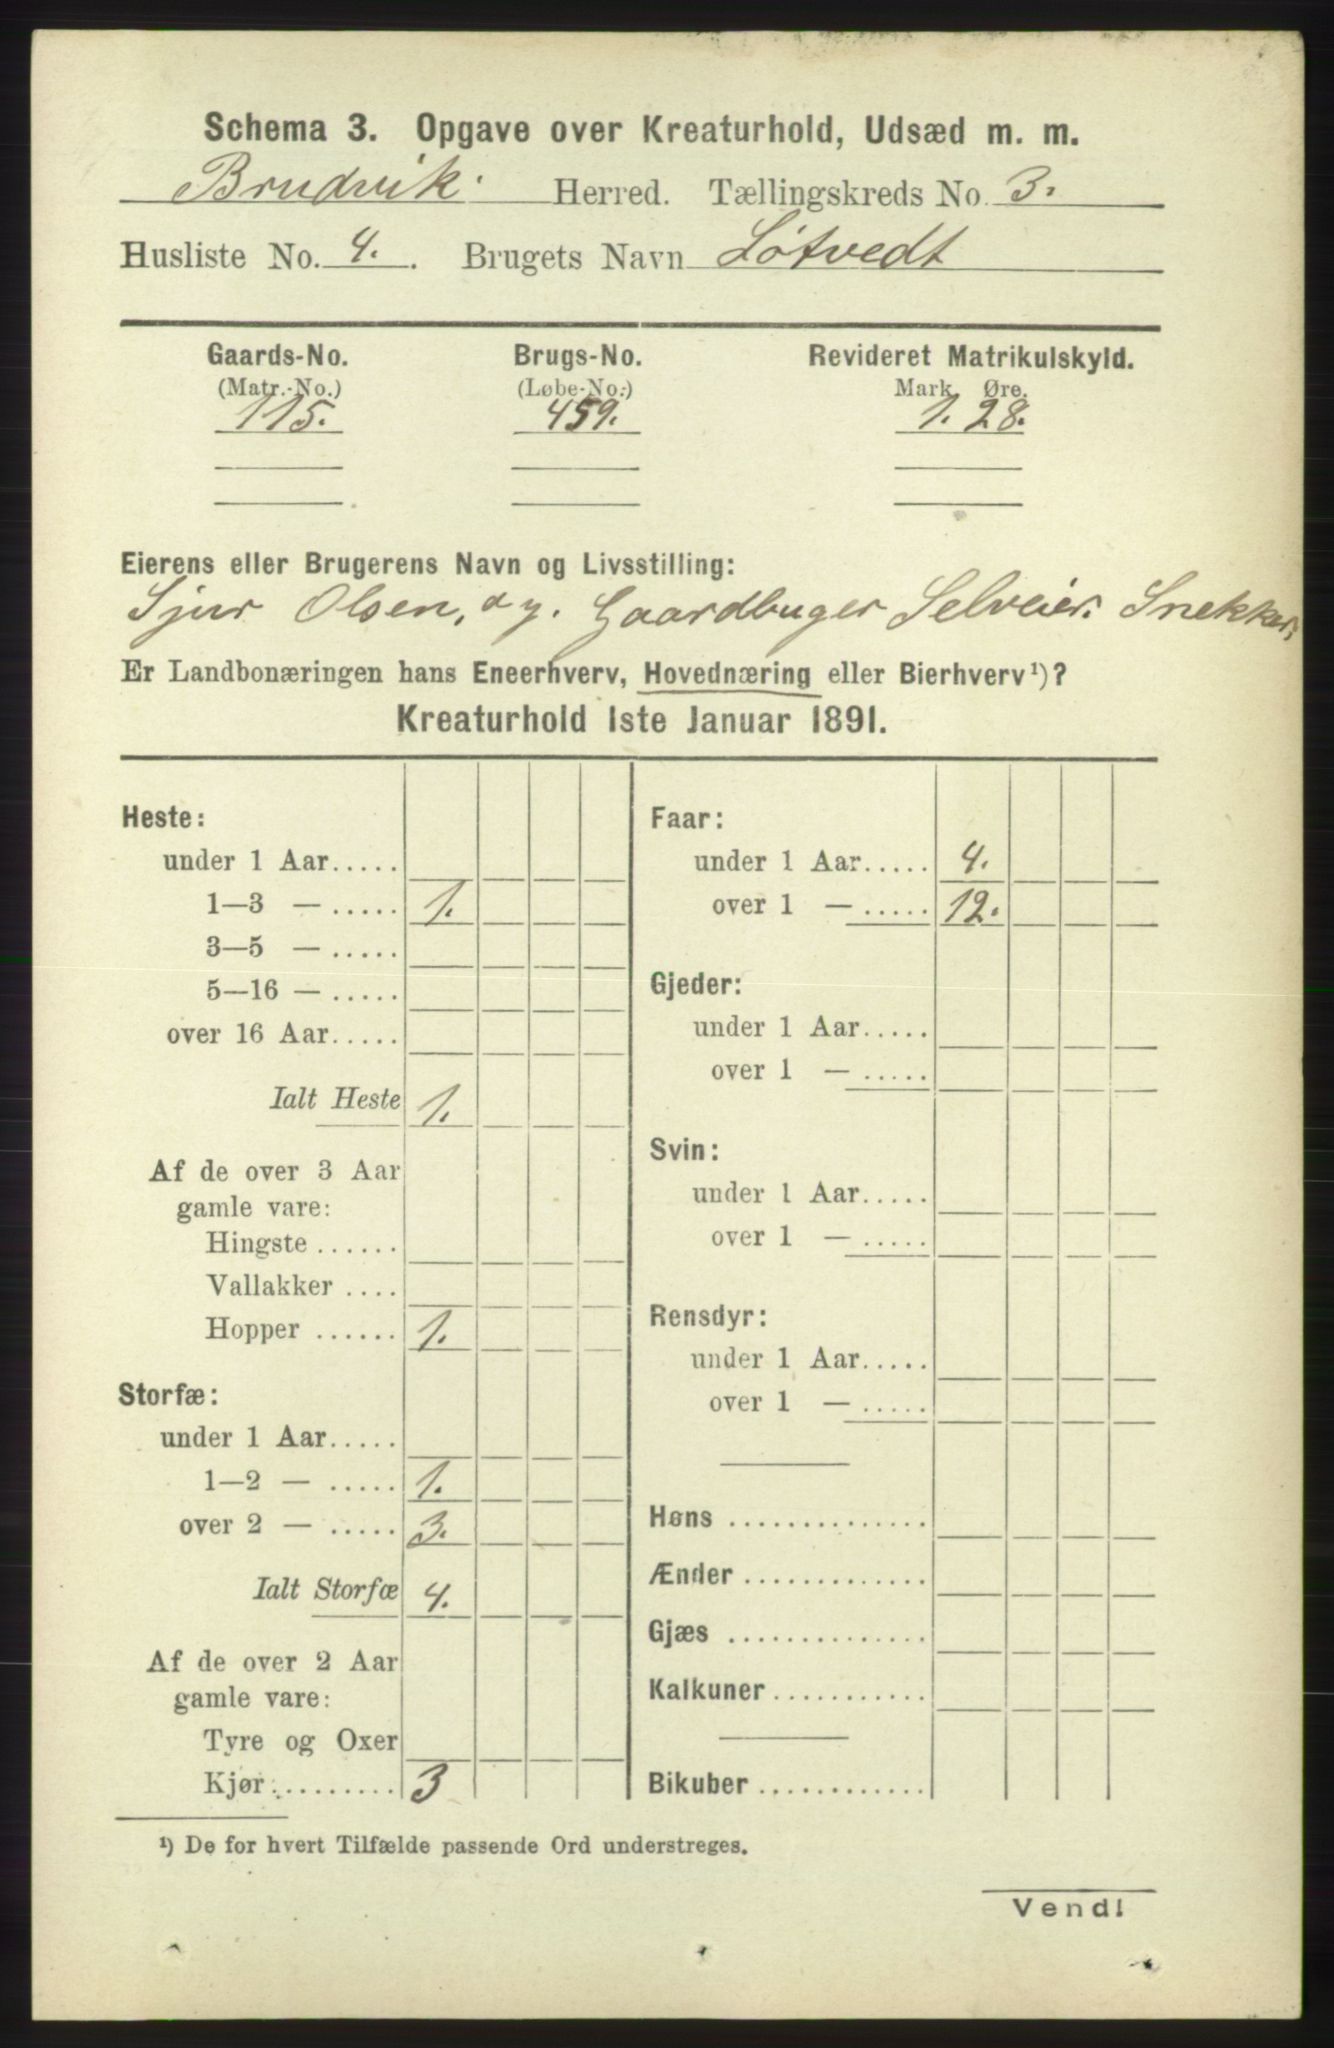 Schema 3. Opgave over Kreaturhold, Udsæd m. m.
Brudvik. Herred. Tællingskreds No. 3.
Husliste No. 4. Brugets Navn Løtvedt
Gaards-No. Brugs-No. Revideret Matrikulskyld.
(Matr.-No.) (Løbe-No.) Mark Øre.
115. 459. 1. 28.
Eierens eller Brugerens Navn og Livsstilling:
Sjur Olsen, Gaardbuger Selveier. Snekker.
Er Landbonæringen hans Eneerhverv, Hovednæring eller Bierhverv¹)?
Kreaturhold 1ste Januar 1891.
Heste:
under 1 Aar.....
1—3 — ..... 1.
3—5 — .....
5—16 — .....
over 16 Aar.....
Ialt Heste 1.
Af de over 3 Aar
gamle vare:
Hingste ......
Vallakker ....
Hopper ...... 1.
Storfæ:
under 1 Aar.....
1—2 — ..... 1.
over 2 — ..... 3.
Ialt Storfæ 4.
Af de over 2 Aar
gamle vare:
Tyre og Oxer
Kjør......... 3
Faar:
under 1 Aar..... 4.
over 1 — ..... 12.
Gjeder:
under 1 Aar.....
over 1 — .....
Svin:
under 1 Aar.....
over 1 — .....
Rensdyr:
under 1 Aar.....
over 1 — .....
Høns ..............
Ænder .............
Gjæs ..............
Kalkuner...........
Bikuber ............
¹) De for hvert Tilfælde passende Ord understreges.
Vend!